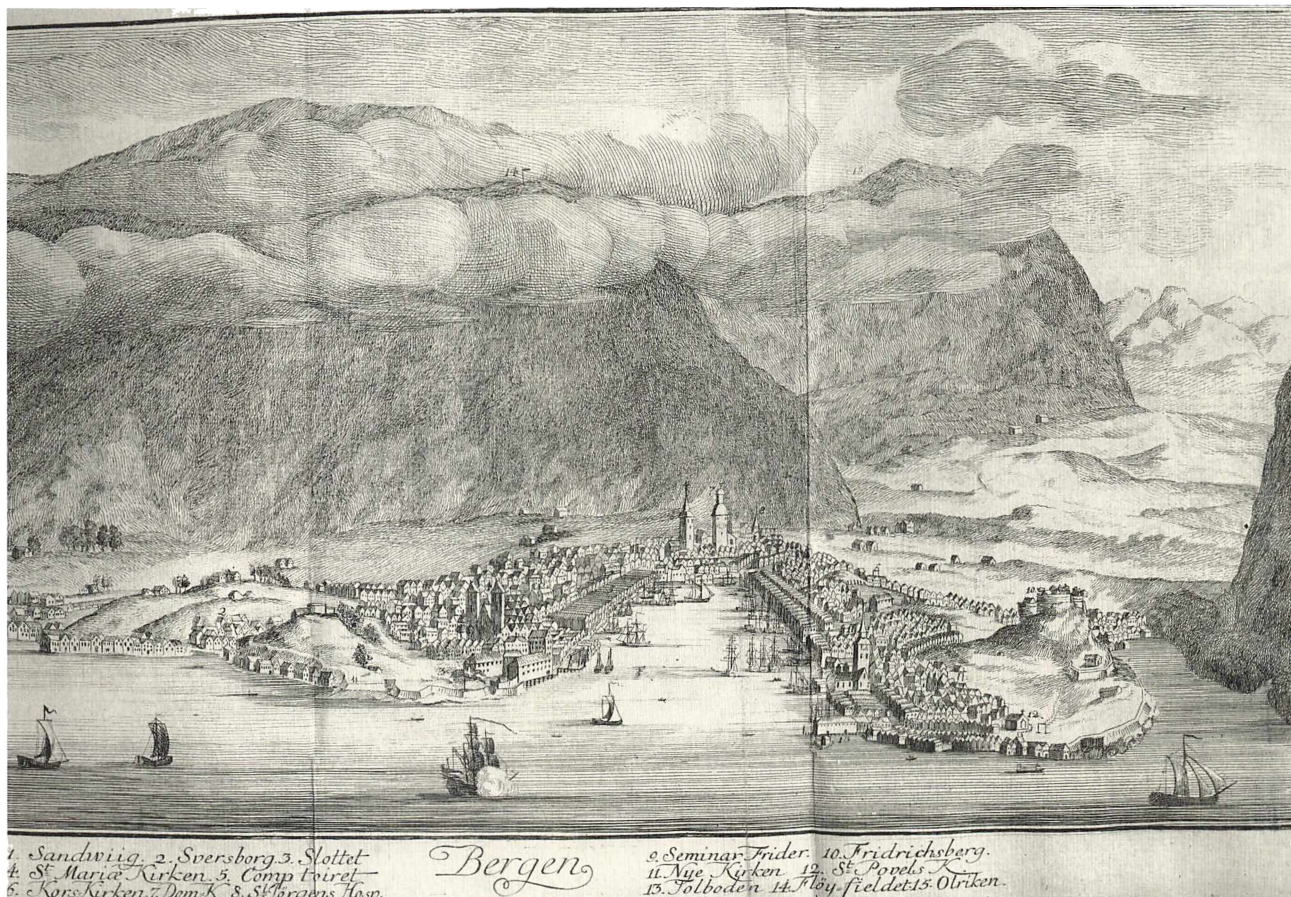 1. Sandwiig. 2. Sversborg. 3. Slottet
4. St Mariæ Kirken. 5. Comptoiret
6. Kors Kirken. 7. Dom K. 8. St Jörgens Hosp.
Bergen
9. Seminar Frider. 10. Fridrichsberg.
11. Nye Kirken 12. St Povels K.
13. Tolboden 14. Flöy-fieldet 15. Olriken.
14
15
10